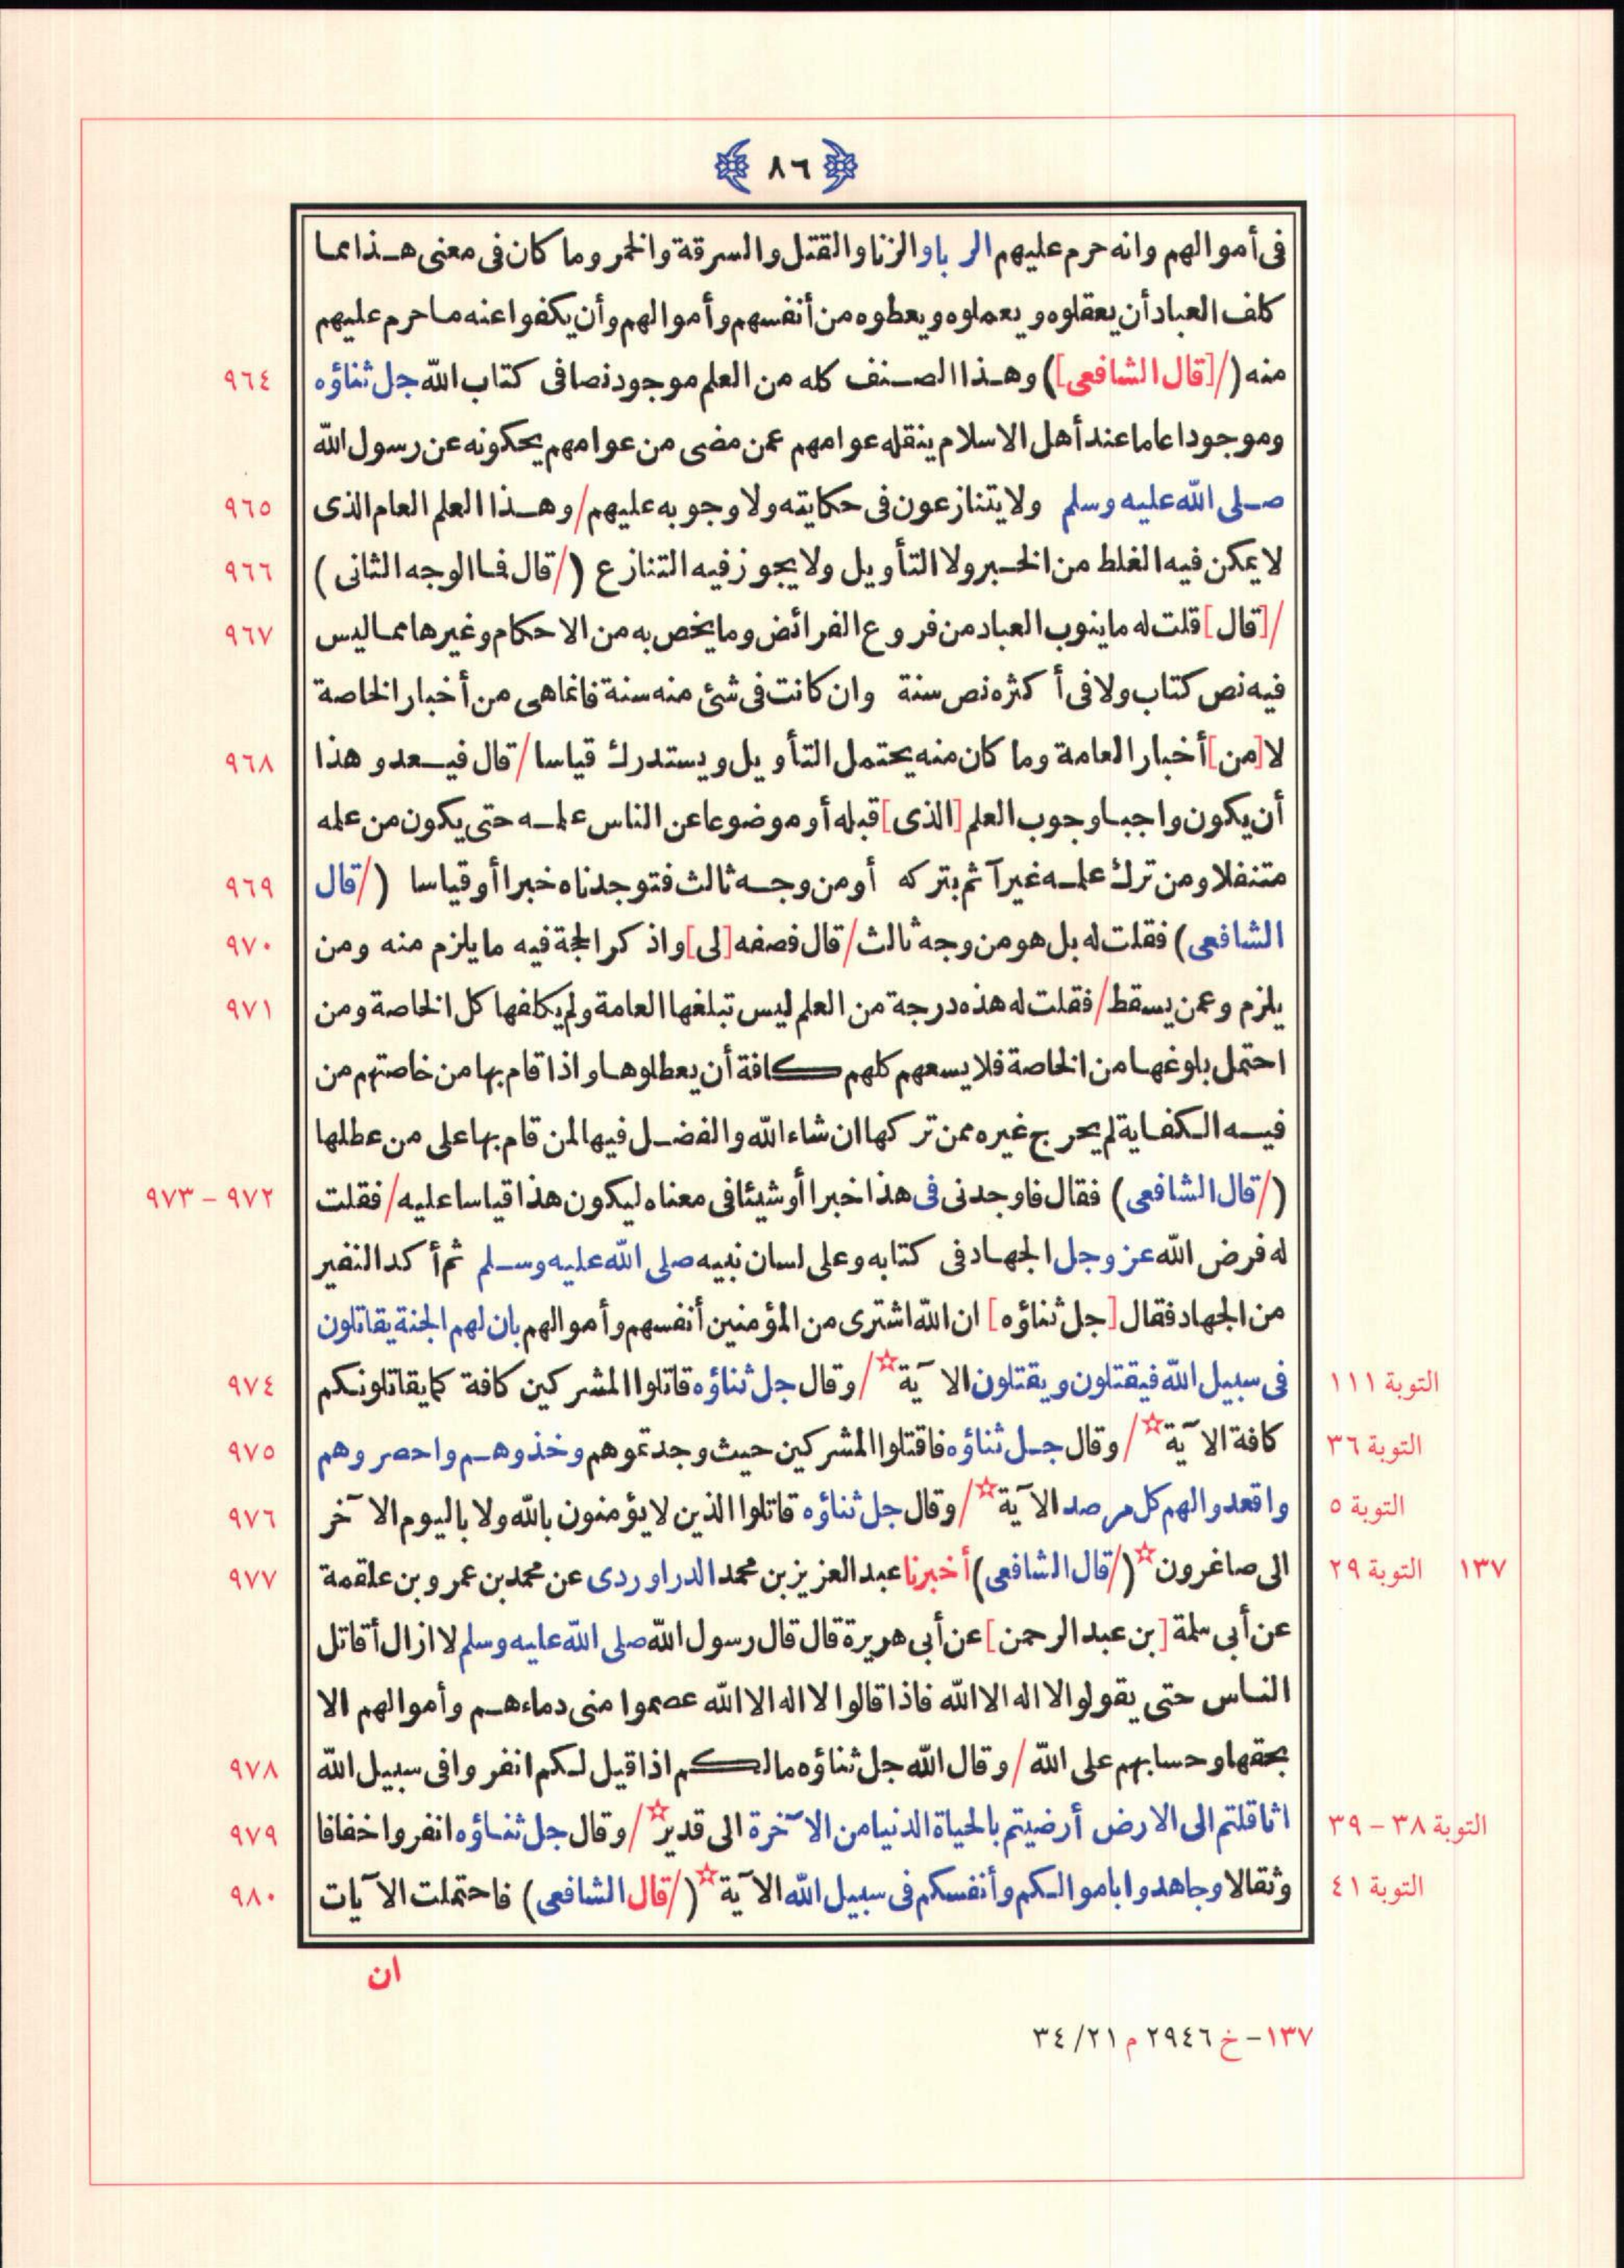 ٨٦
فى أموالهم وانه حرم عليهم الرباو الزنا والقتل والسرقة والخمر وما كان فى معنى هذا مما
كلف العباد أن يعقلوه ويعملوه ويعطوه من أنفسهم وأموالهم وأن يكفوا عنه ما حرم عليهم
منه (/[قال الشافعى]) وهذا الصنف كله من العلم موجود نصا فى كتاب الله جل ثناؤه ٩٦٤
وموجودا عاما عند أهل الاسلام ينقله عوامهم عمن مضى من عوامهم يحكونه عن رسول الله
صلى الله عليه وسلم ولا يتنازعون فى حكايته ولا وجوبه عليهم / وهذا العلم العام الذى ٩٦٥
لا يمكن فيه الغلط من الخبر ولا التأويل ولا يجوز فيه التنازع (/ قال فما الوجه الثانى) ٩٦٦
/[قال] قلت له ما ينوب العباد من فروع الفرائض وما يخص به من الاحكام وغيرها مما ليس ٩٦٧
فيه نص كتاب ولا فى أكثره نص سنة وان كانت فى شئ منه سنة فانما هى من أخبار الخاصة
لا [من] أخبار العامة وما كان منه يحتمل التأويل ويستدرك قياسا / قال فيعدو هذا ٩٦٨
أن يكون واجبا وجوب العلم [الذى] قبله أو موضوعا عن الناس علمه حتى يكون من علمه
متنفلا ومن ترك علمه غير آثم بتركه أو من وجه ثالث فتوجدناه خبرا أو قياسا (/ قال ٩٦٩
الشافعى) فقلت له بل هو من وجه ثالث / قال فصفه [لى] واذكر الحجة فيه ما يلزم منه ومن ٩٧٠
يلزم وعمن يسقط / فقلت له هذه درجة من العلم ليس تبلغها العامة ولم يكلفها كل الخاصة ومن ٩٧١
احتمل بلوغها من الخاصة فلا يسعهم كلهم كافة أن يعطلوها واذا قام بها من خاصتهم من
فيه الكفاية لم يحرج غيره ممن تركها ان شاء الله والفضل فيها لمن قام بها على من عطلها
(/ قال الشافعى) فقال فاوجدنى فى هذا خبرا أو شيئا فى معناه ليكون هذا قياسا عليه / فقلت ٩٧٢ – ٩٧٣
له فرض الله عز وجل الجهاد فى كتابه وعلى لسان نبيه صلى الله عليه وسلم ثم أكد النفير
من الجهاد فقال [جل ثناؤه] ان الله اشترى من المؤمنين أنفسهم وأموالهم بان لهم الجنة يقاتلون
التوبة ١١١ فى سبيل الله فيقتلون ويقتلون الآية☆ / وقال جل ثناؤه قاتلوا المشركين كافة كما يقاتلونكم ٩٧٤
التوبة ٣٦ كافة الآية☆ / وقال جل ثناؤه فاقتلوا المشركين حيث وجدتموهم وخذوهم واحصروهم ٩٧٥
التوبة ٥ واقعدوا لهم كل مرصد الآية☆ / وقال جل ثناؤه قاتلوا الذين لا يؤمنون بالله ولا باليوم الآخر ٩٧٦
١٣٧ التوبة ٢٩ الى صاغرون☆ (/ قال الشافعى) أخبرنا عبد العزيز بن محمد الدراوردى عن محمد بن عمرو بن علقمة ٩٧٧
عن أبى سلمة [بن عبد الرحمن] عن أبى هريرة قال قال رسول الله صلى الله عليه وسلم لا ازال أقاتل
الناس حتى يقولوا لا اله الا الله فاذا قالوا لا اله الا الله عصموا منى دماءهم وأموالهم الا
بحقها وحسابهم على الله / وقال الله جل ثناؤه مالكم اذا قيل لكم انفروا فى سبيل الله ٩٧٨
التوبة ٣٨ – ٣٩ اثاقلتم الى الارض أرضيتم بالحياة الدنيا من الآخرة الى قدير☆ / وقال جل ثناؤه انفروا خفافا ٩٧٩
التوبة ٤١ وثقالا وجاهدوا باموالكم وأنفسكم فى سبيل الله الآية☆ (/ قال الشافعى) فاحتملت الآيات ٩٨٠
ان
١٣٧ – خ ٢٩٤٦ م ٢١/ ٣٤